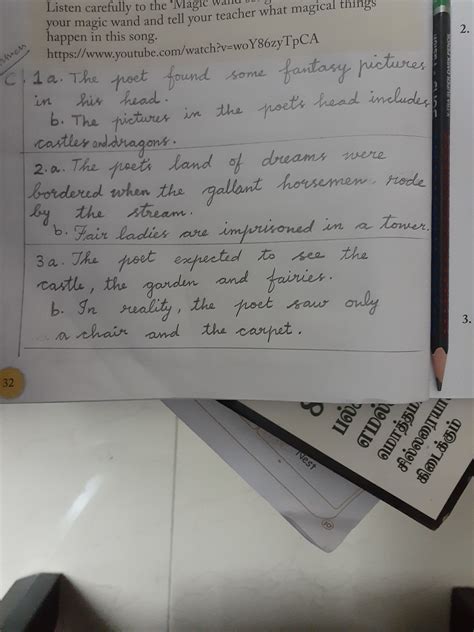 Listen carefully to the 'Magic wand
your magic wand and tell your teacher what magical things
happen in this song.
https://www.youtube.com/watch?v=woY86zyTpCA
C. 1 a. The poet found some fantasy pictures
in his head.
b. The pictures in the poet's head includes
castles and dragons.
2. a. The poet's land of dreams were
bordered when the gallant horsemen rode
by the stream.
b. Fair ladies are imprisoned in a tower.
3 a. The poet expected to see the
castle, the garden and fairies.
b. In reality, the poet saw only
a chair and the carpet.
32
2.
3.
Nest
எமல்
மொத்தம
சில்லரையா
கிடைக்கும்